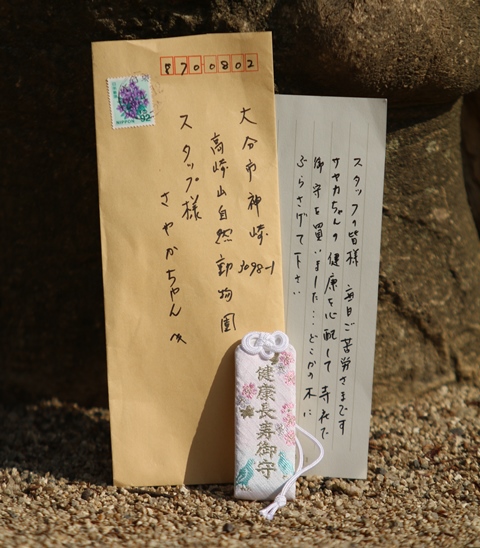 8700802
92
NIPPON
大分市神崎3098-1
高崎山自然動物園
スタッフ様
さやかちゃん
スタッフの皆様 毎日ご苦労さまです
サヤカちゃんの健康を心配して寺社で
御守を買いました…どこかの木に
ぶらさげて下さい
健康長寿御守